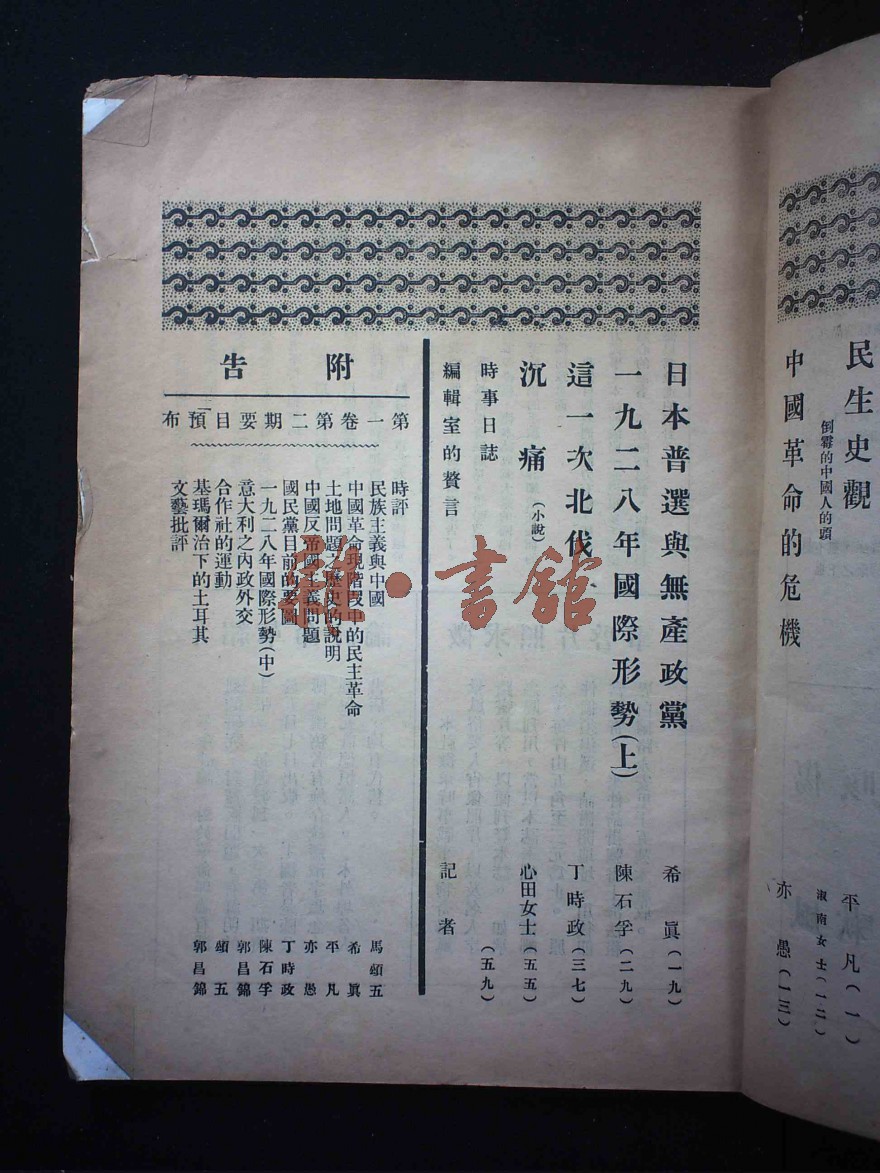 民生史觀 平凡(一)
倒霉的中國人的頭 淑南女士(一二)
中國革命的危機 亦愚(一三)
日本普選與無產政黨 希眞(一九)
一九二八年國際形勢(上) 陳石孚(二九)
這一次北伐 丁時政(三七)
沉痛(小說) 心田女士(五五)
時事日誌
編輯室的贅言 記者(五九)
附告
第一卷第二期要目預布
時評
民族主義與中國 馬頌五
中國革命現階段中的民主革命 希眞
土地問題歷史的說明 平凡
中國反帝國主義問題 亦愚
國民黨目前的要圖 丁時政
一九二八年國際形勢(中) 陳石孚
意大利之內政外交 郭昌錦
合作社的運動 頌五
基瑪爾治下的土耳其 郭昌錦
文藝批評
書館